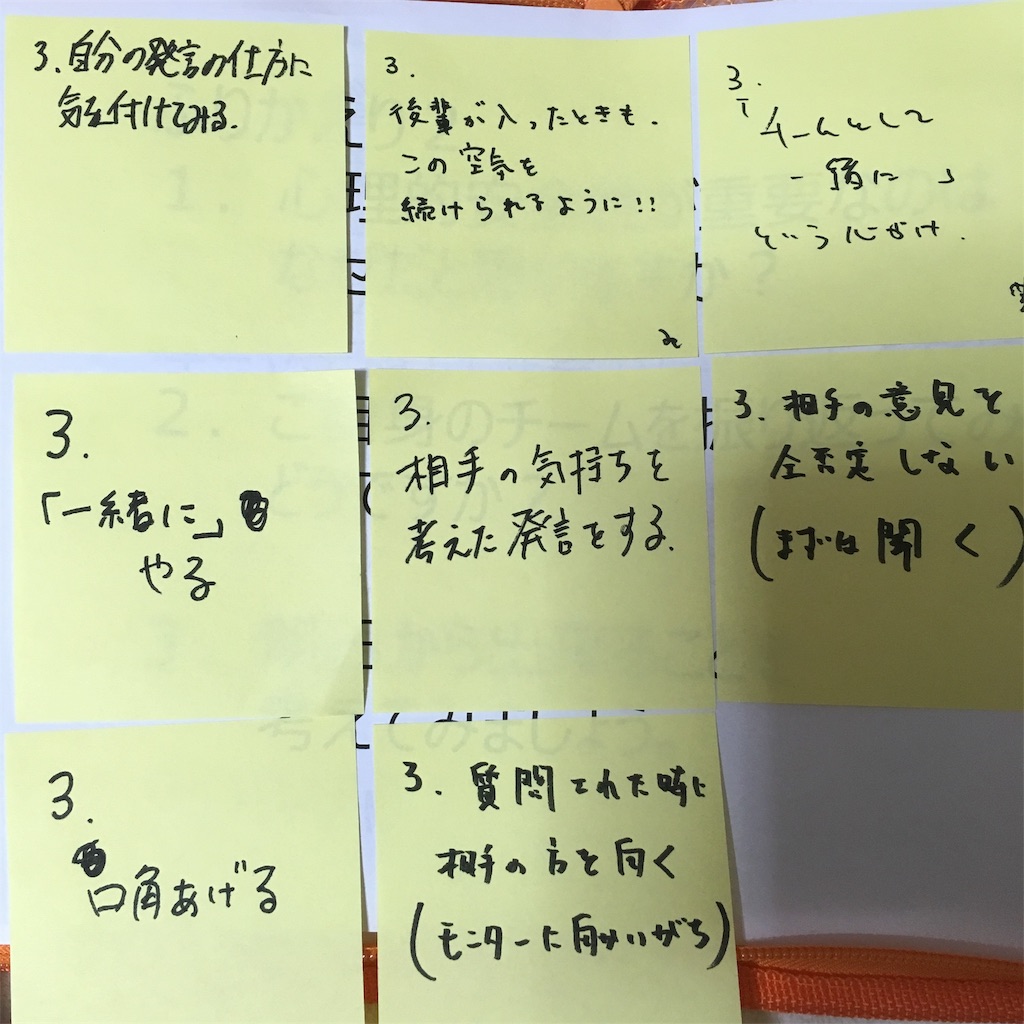 3. 自分の発言の仕方に
気を付けてみる.
3.
後輩が入ったときも.
この空気を
続けられるように!!
3.
「チームとして
一緒に」
という心がけ.
3.
「一緒に」
やる
3.
相手の気持ちを
考えた発言をする.
3. 相手の意見を
全否定しない
(まずは聞く)
3.
口角あげる
3. 質問された時に
相手の方を向く
(モニターに向かいがち)
1. 心理的 重要なのは
ますか?
2. ご自身のチームを
どうですか?
3. から
考えてみましょう。